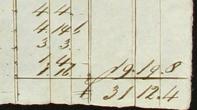 4 4
4 14 6
3 3
19 19 8
£ 31 12 4